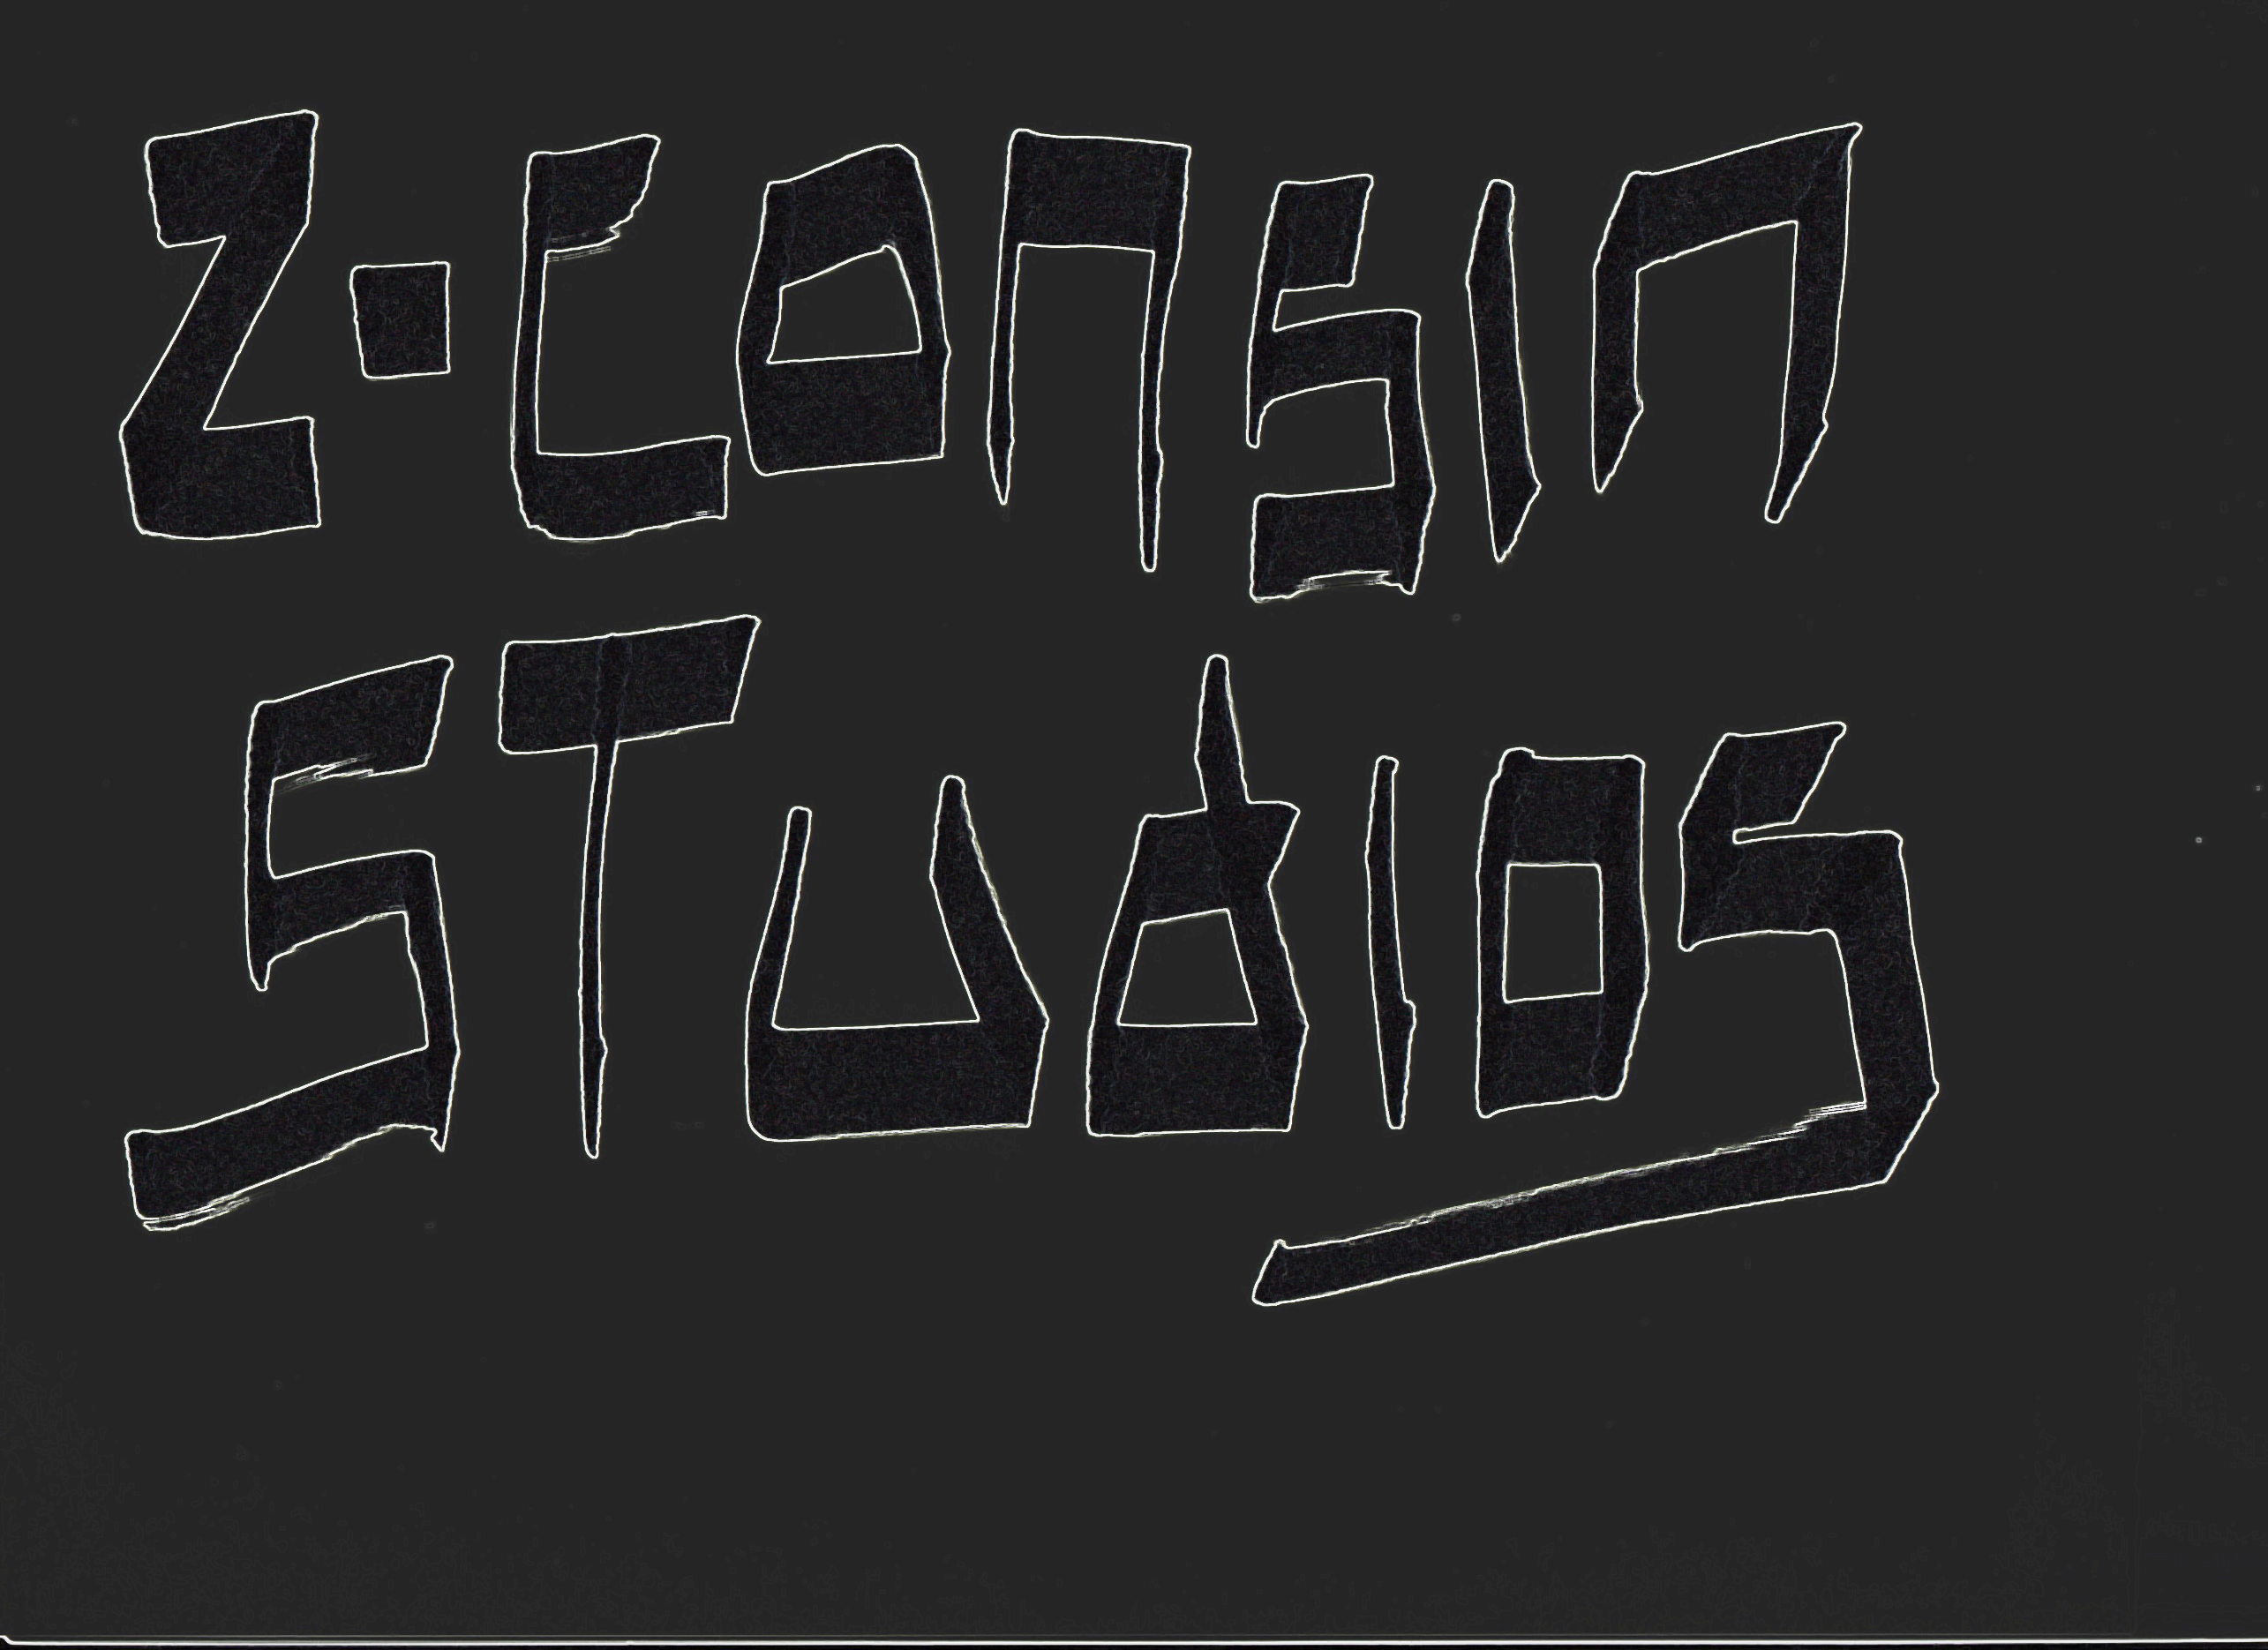 Z-Consin
STudios